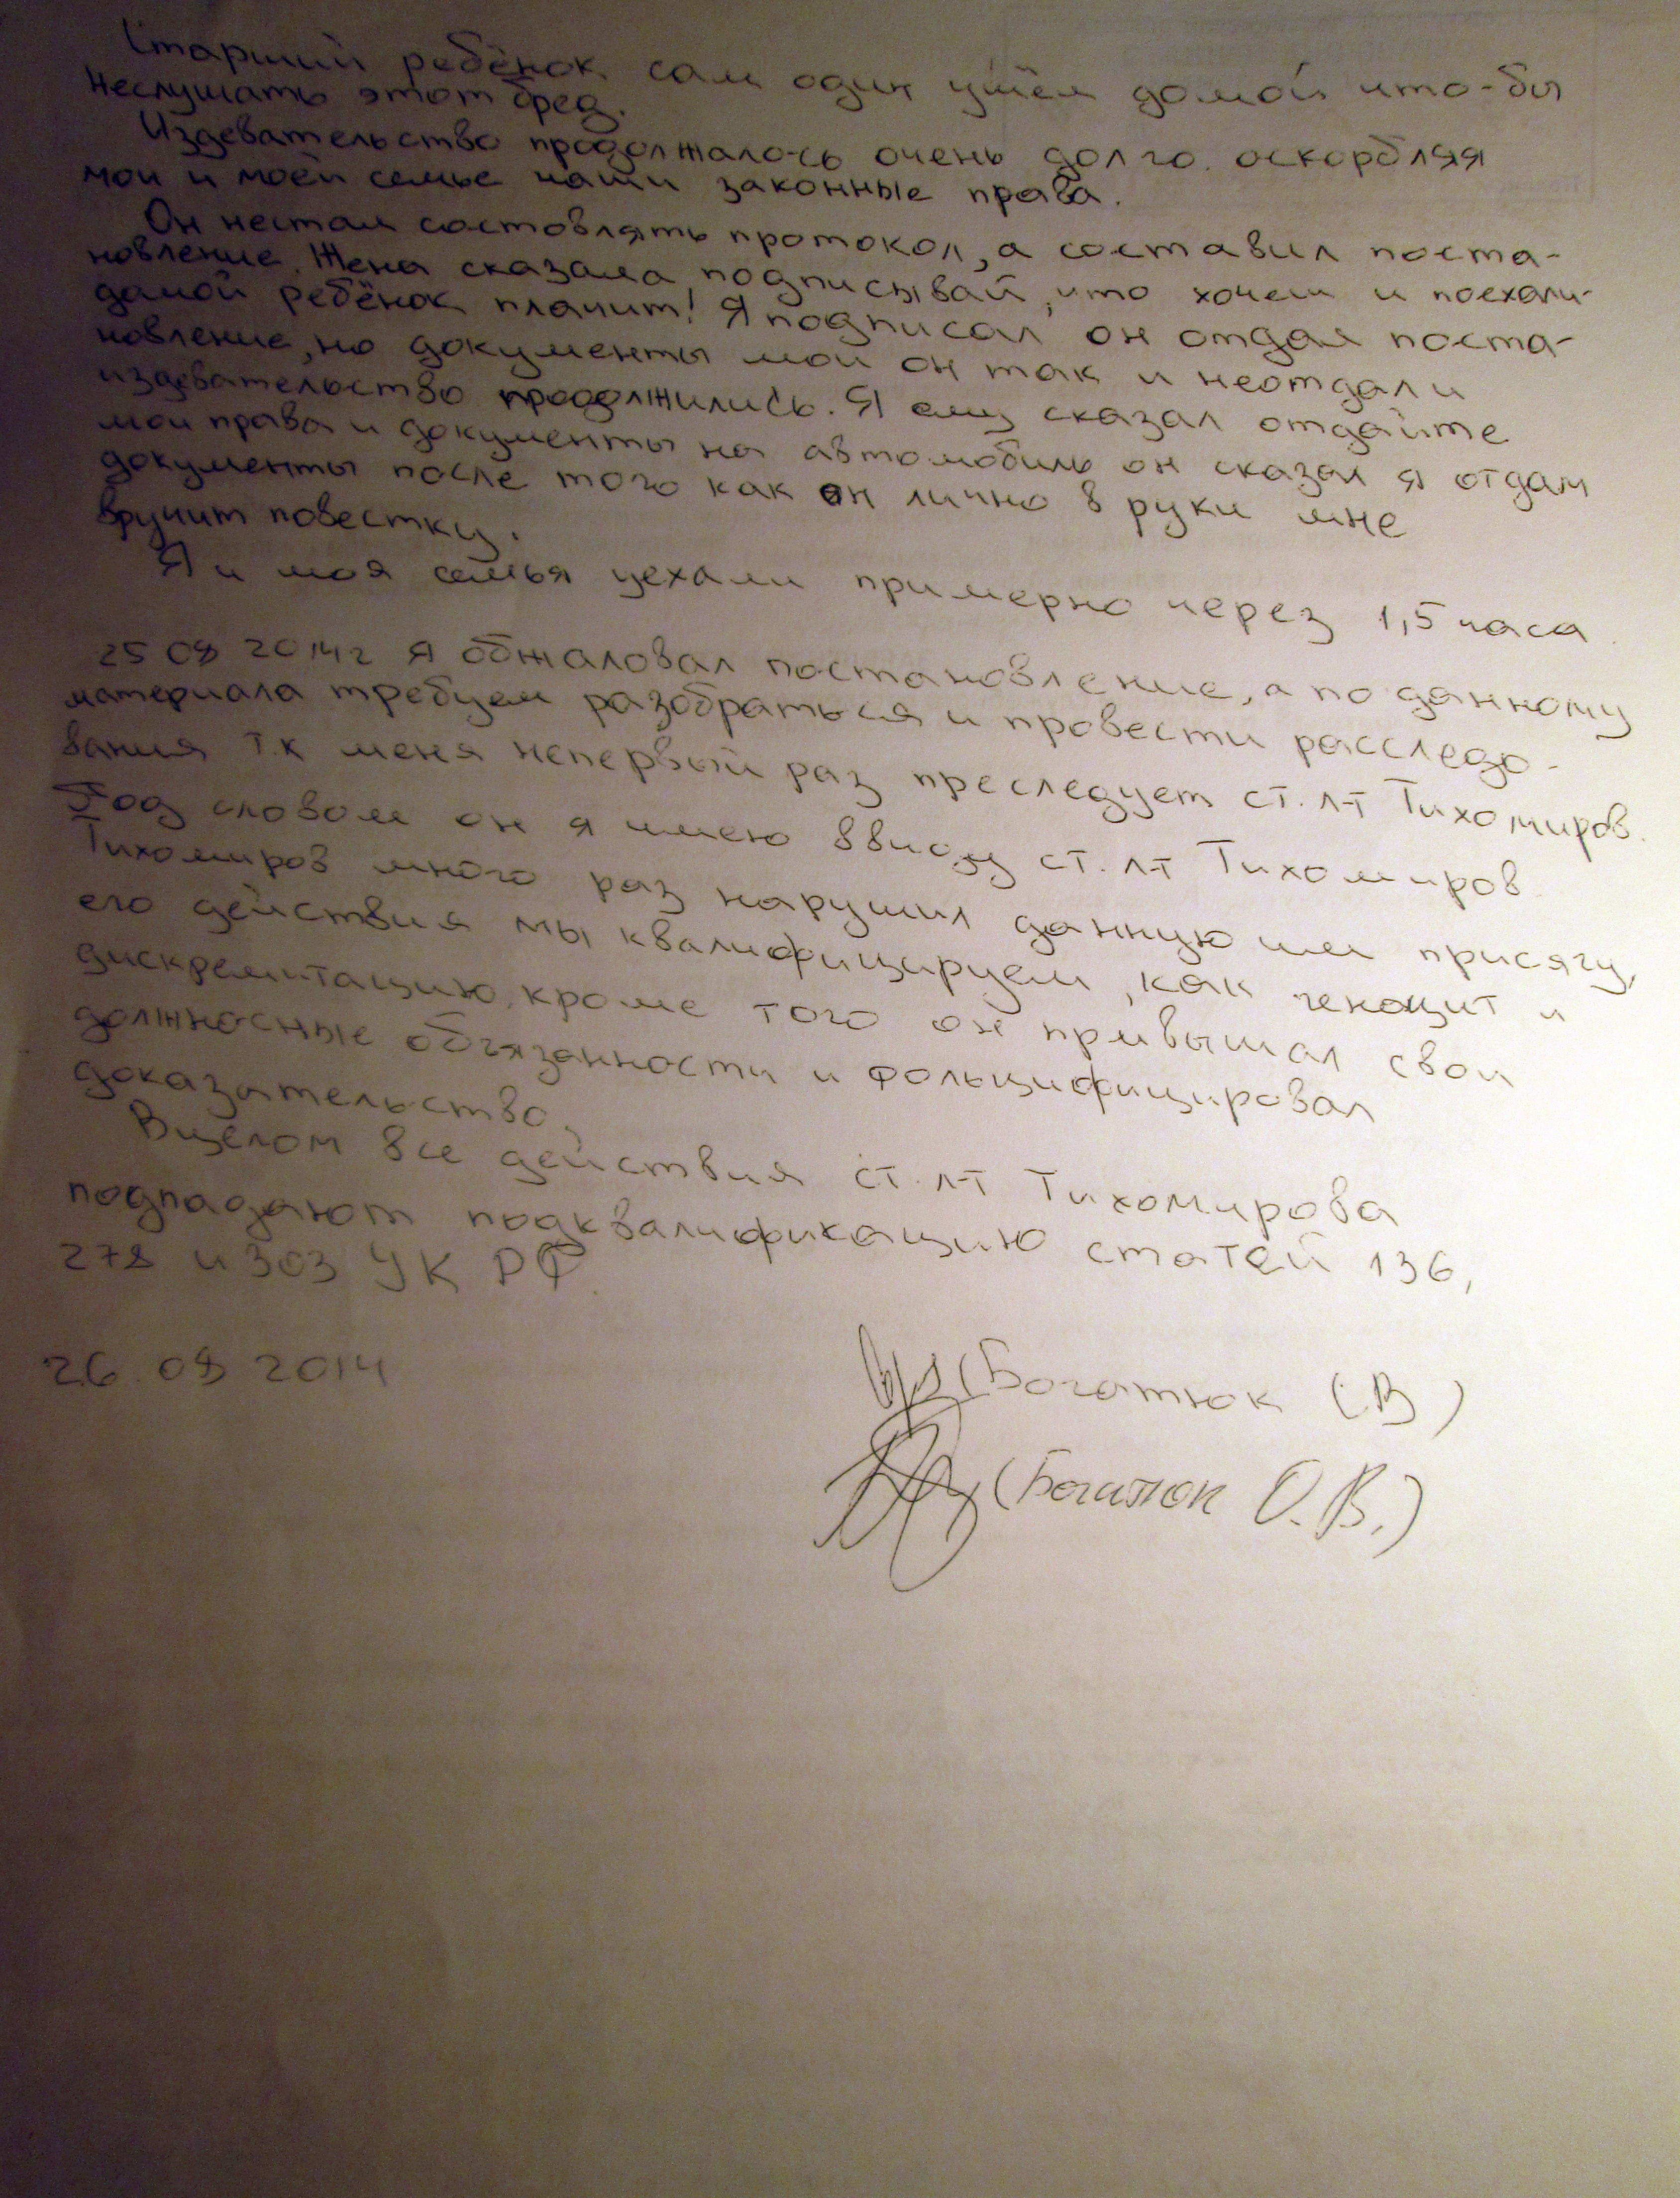 Старший ребёнок сам один ушёл домой что-бы
неслушать этот бред.
Издевательство продолжалось очень долго. оскорбляя
мои и моей семье наши законные права.
Он нестал состовлять протокол, а составил поста-
новление. Жена сказала подписывай, что хочет и поехали
домой ребёнок плачит! Я подписал он отдал поста-
новление, но документы мои он так и неотдал и
издевательство продолжились. Я ему сказал отдайте
мои права и документы на автомобиль он сказал я отдам
документы после того как он лично в руки мне
вручит повестку.
Я и моя семья уехали примерно через 1,5 часа.
25 08 2014г я обжаловал постановление, а по данному
материала требуем разобраться и провести расследо-
вания т.к меня непервый раз преследует ст. л-т Тихомиров.
Под словом он я имею ввиду ст. л-т Тихомиров.
Тихомиров много раз нарушил данную им присягу,
его действия мы квалифицируем, как геноцит и
дискремитацию, кроме того он привышал свои
должносные обязанности и фольцифицировал
доказательство.
Вцелом все действия ст. л-т Тихомирова
подпадают подквалификацию статей 136,
278 и 303 УК РФ.
26.08 2014
(Богатюк В)
(Богатюк О.В.)